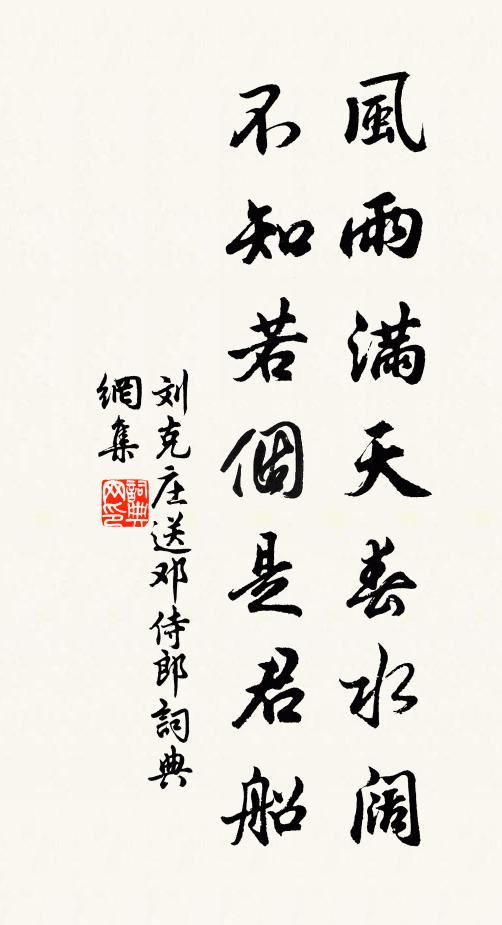 風雨滿天春水阔
不知若個是君船
刘克庄送邓侍郎詞典
網集
詞典网印